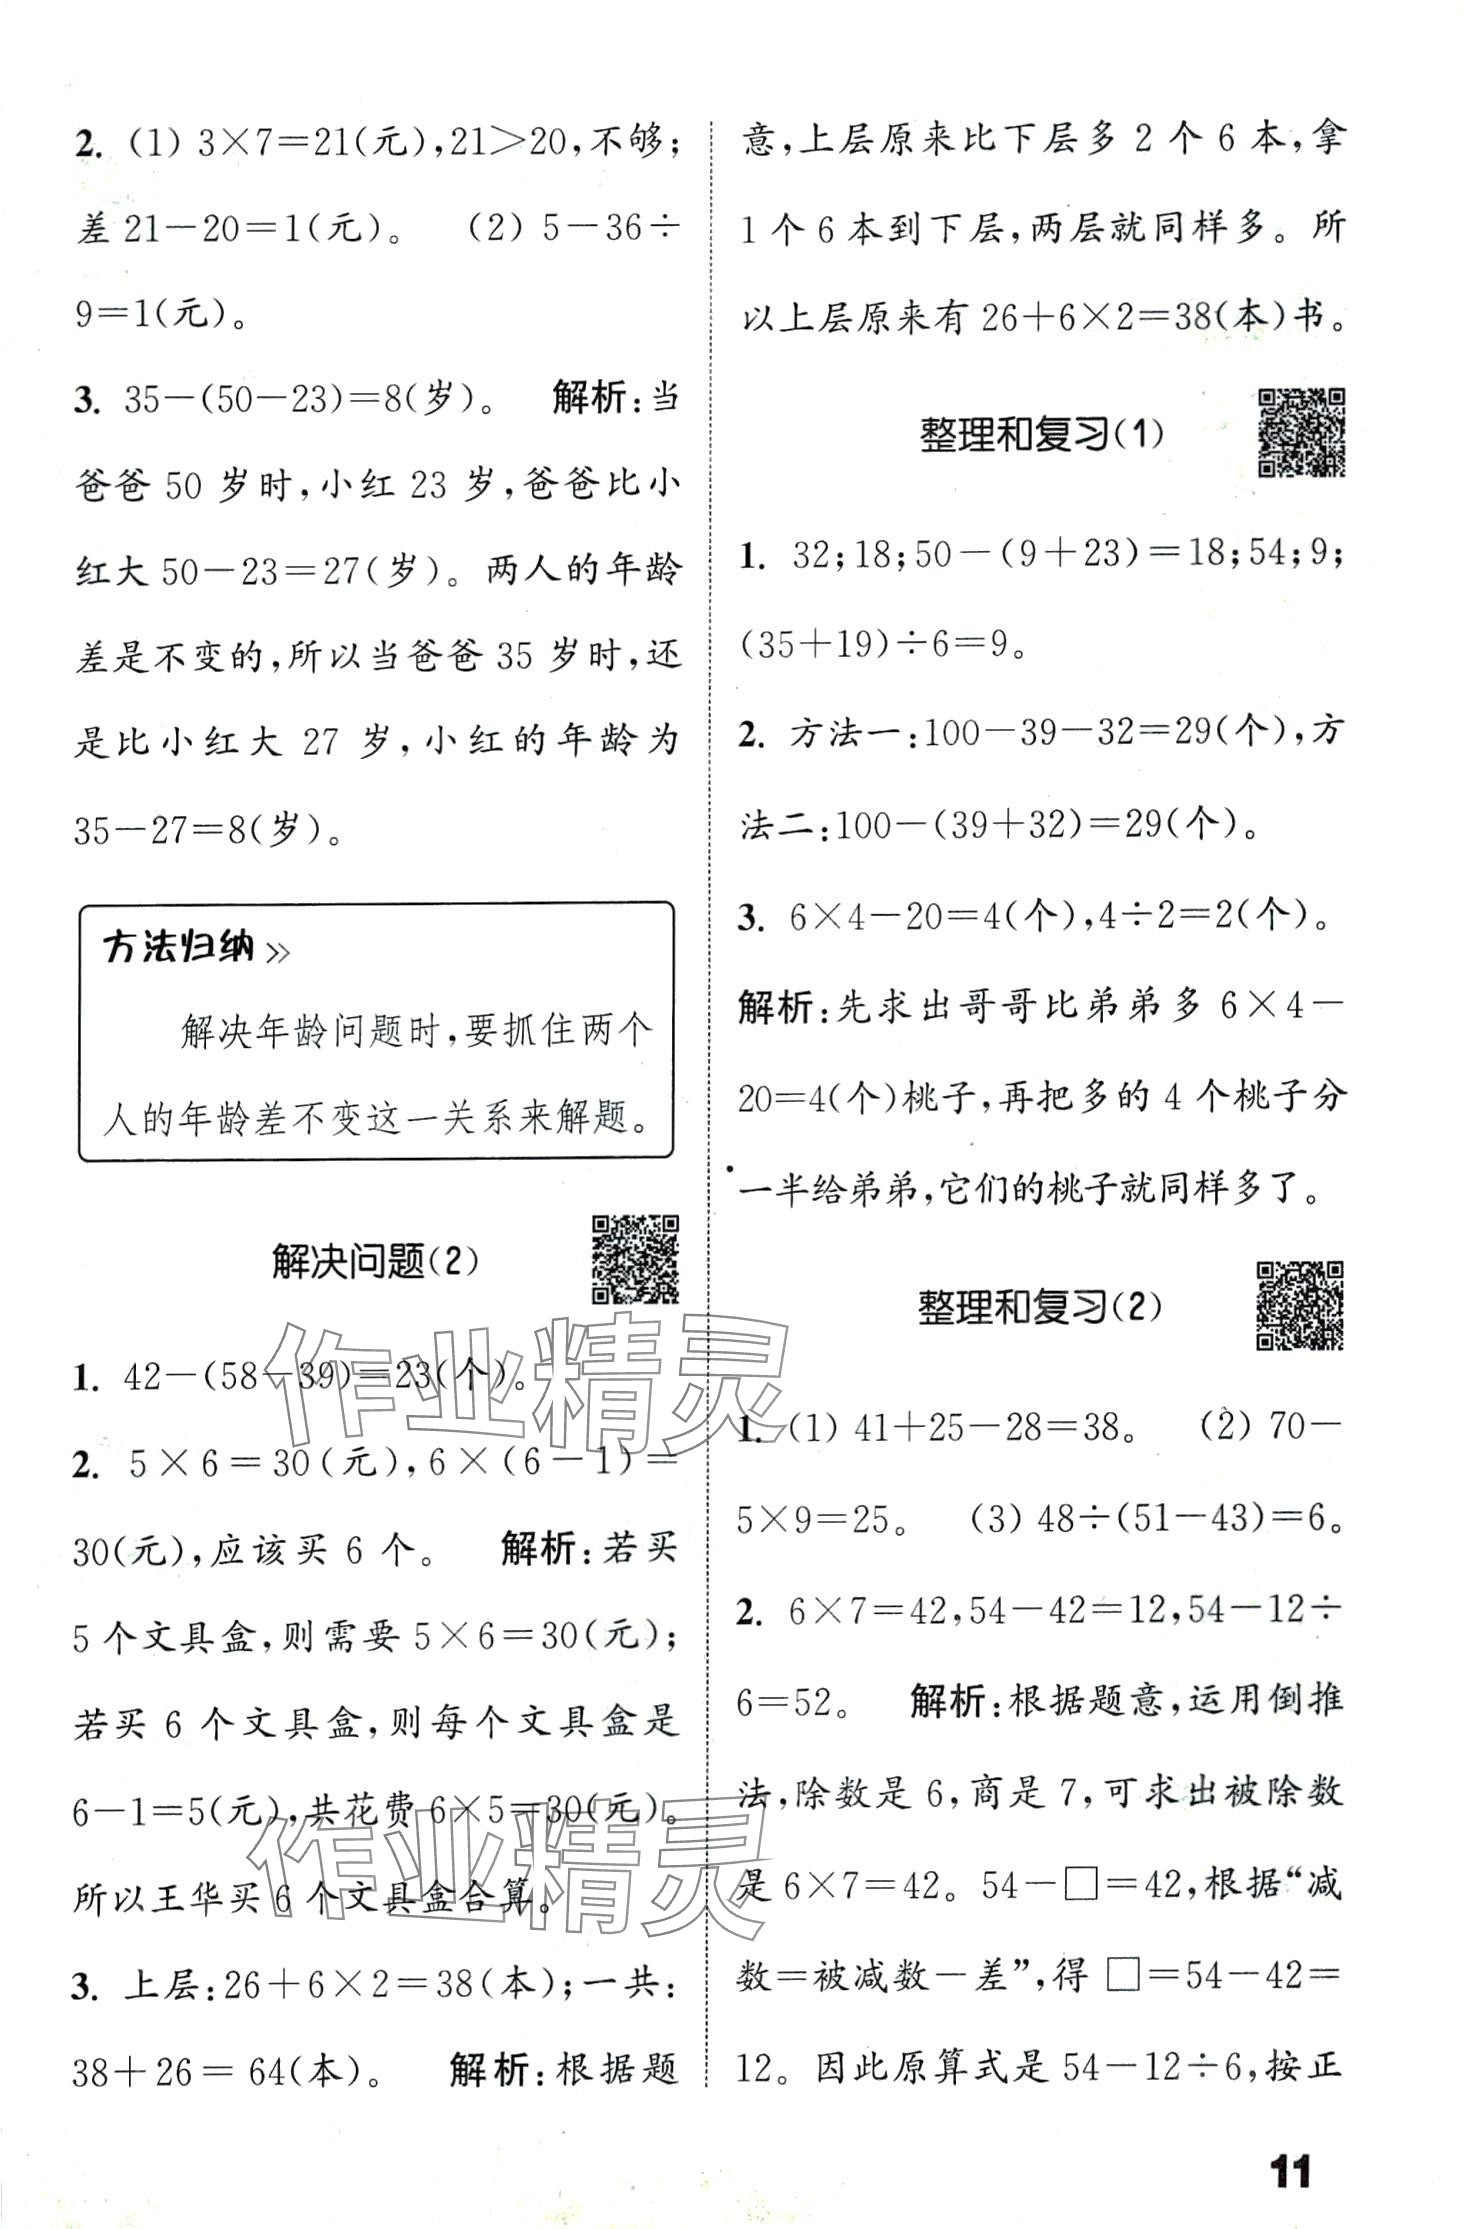 2. (1) 3×7=21(元),21>20,不够;
差21-20=1(元)。 (2) 5-36÷
9=1(元)。
3. 35-(50-23)=8(岁)。 解析:当
爸爸 50 岁时,小红 23 岁,爸爸比小
红大 50-23=27(岁)。两人的年龄
差是不变的,所以当爸爸 35 岁时,还
是比小红大 27 岁,小红的年龄为
35-27=8(岁)。
方法归纳»
解决年龄问题时,要抓住两个
人的年龄差不变这一关系来解题。
解决问题(2)
1. 42-(58-39)=23(个)。
2. 5×6=30(元),6×(6-1)=
30(元),应该买 6 个。 解析:若买
5个文具盒,则需要 5×6=30(元);
若买 6 个文具盒,则每个文具盒是
6-1=5(元),共花费 6×5=30(元)。
所以王华买 6 个文具盒合算。
3. 上层:26+6×2=38(本);一共:
38+26=64(本)。 解析:根据题
意,上层原来比下层多 2 个 6 本,拿
1个6本到下层,两层就同样多。所
以上层原来有 26+6×2=38(本)书。
整理和复习(1)
1. 32;18;50-(9+23)=18;54;9;
(35+19)÷6=9。
2. 方法一:100-39-32=29(个),方
法二:100-(39+32)=29(个)。
3. 6×4-20=4(个),4÷2=2(个)。
解析:先求出哥哥比弟弟多 6×4-
20=4(个)桃子,再把多的 4 个桃子分
一半给弟弟,它们的桃子就同样多了。
整理和复习(2)
1. (1) 41+25-28=38。 (2) 70-
5×9=25。 (3) 48÷(51-43)=6。
2. 6×7=42,54-42=12,54-12÷
6=52。 解析:根据题意,运用倒推
法,除数是 6,商是 7,可求出被除数
是 6×7=42。54-□=42,根据“减
数=被减数-差”,得 □=54-42=
12。因此原算式是 54-12÷6,按正
11
作业精灵
作业精灵